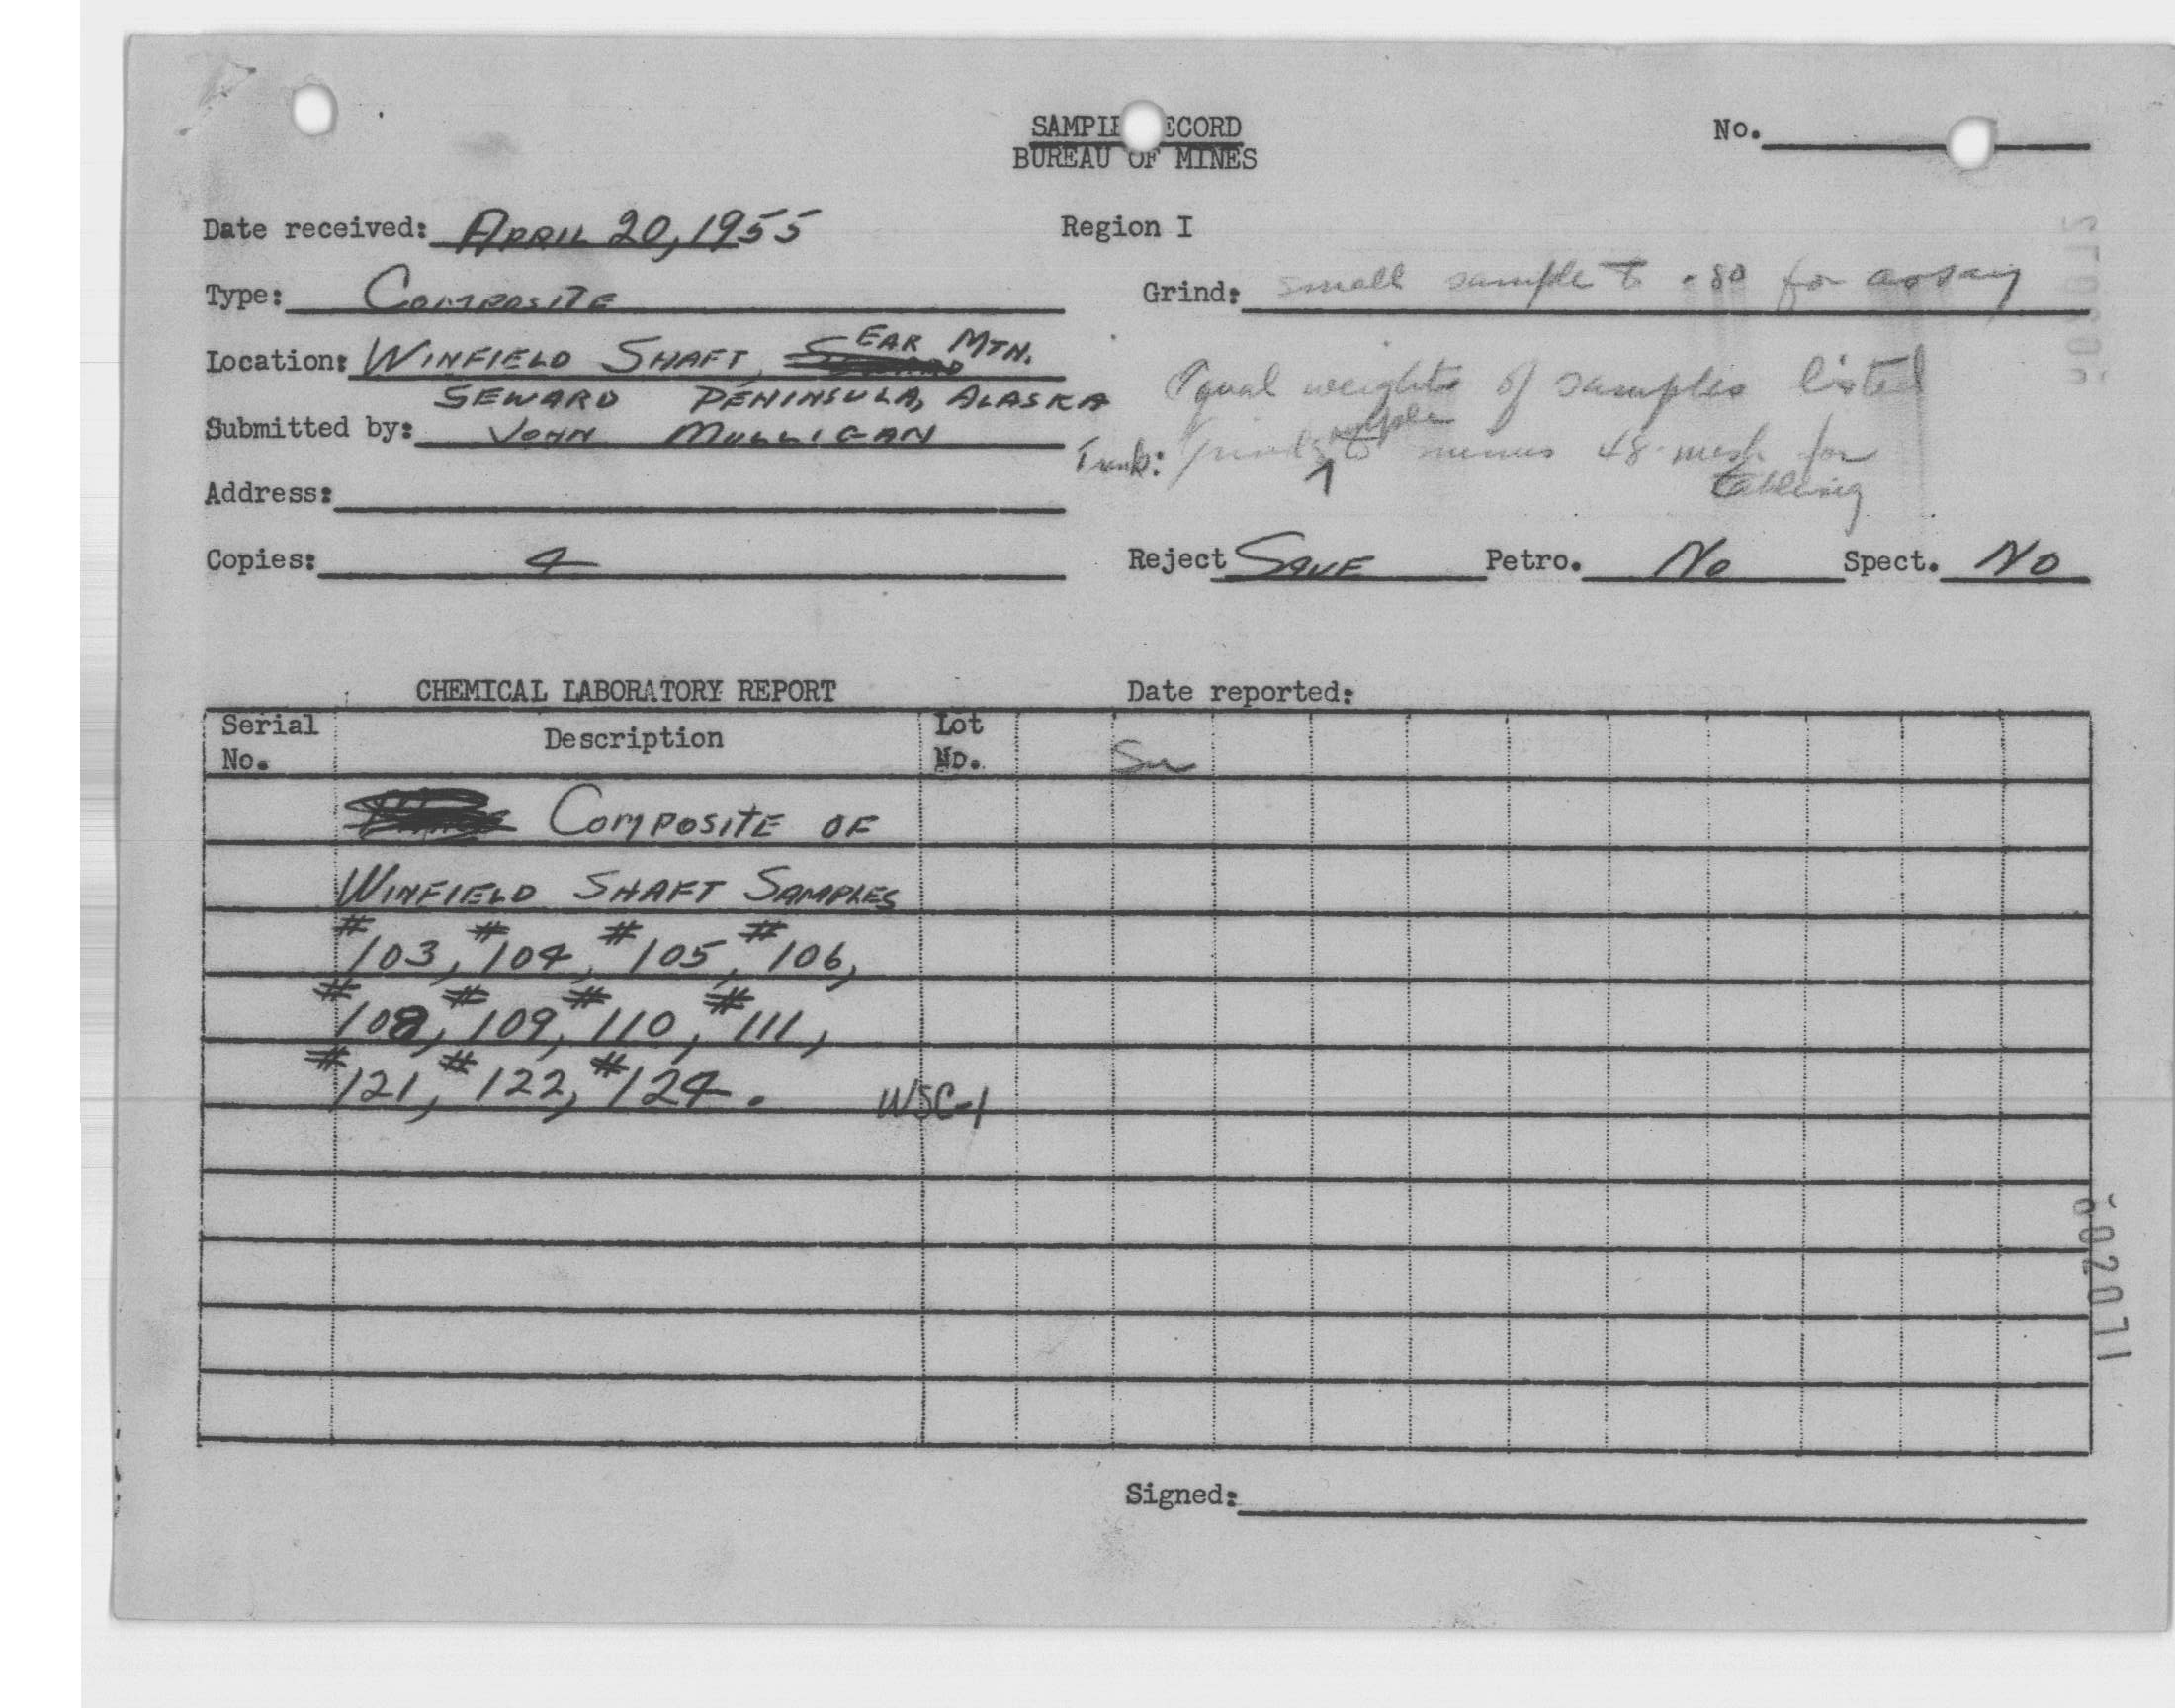 SAMPLE RECORD
No.
BUREAU OF MINES
Date received: APRIL 20, 1955
Region I
Type: COMPOSITE
Grind: small sample to -80 for assay
Location: WINFIELD SHAFT, EAR MTN.
SEWARD PENINSULA, ALASKA
Equal weights of samples listed
Submitted by: JOHN MULLIGAN
sample
to minus 48-mesh for
tabling
Address:
Copies: 4
Reject SAVE Petro. No Spect. NO
CHEMICAL LABORATORY REPORT
Date reported:
Serial No.
Description
Lot No.
Sn
COMPOSITE OF
WINFIELD SHAFT SAMPLES
#103, #104, #105, #106,
#108, #109, #110, #111,
#121, #122, #124.
WSC-1
Signed: